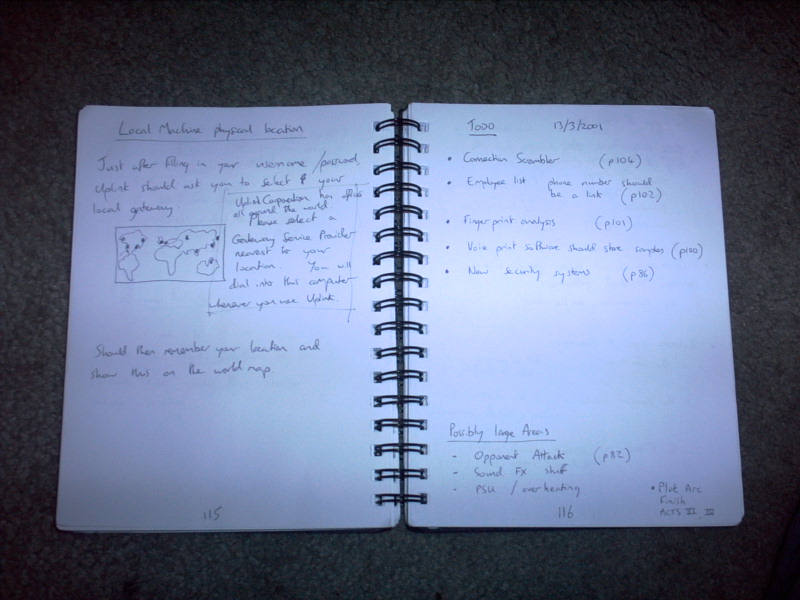 Local Machine physical location
Just after filling in your username / password,
Uplink should ask you to select your
local gateway.
Uplink Corporation has offices
all around the world
Please select a
Gateway Service Provider
nearest to your
location. You will
dial into this computer
whenever you use Uplink.
Should then remember your location and
show this on the world map.
115
TODO 13/3/2001
• Connection Scrambler (p104)
• Employee list phone number should
be a link (p102)
• Finger print analysis (p101)
• Voice print software should store samples (p100)
• New security systems (p86)
Possibly large Areas
- Opponent Attack (p82)
- Sound FX stuff
- PSU / overheating
• Plot Arc
Finish
ACTS III, IV
116